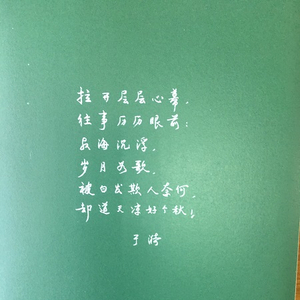 拉开层层心幕，
往事历历眼前：
商海沉浮，
岁月如歌，
被白发欺人奈何，
却道天凉好个秋！